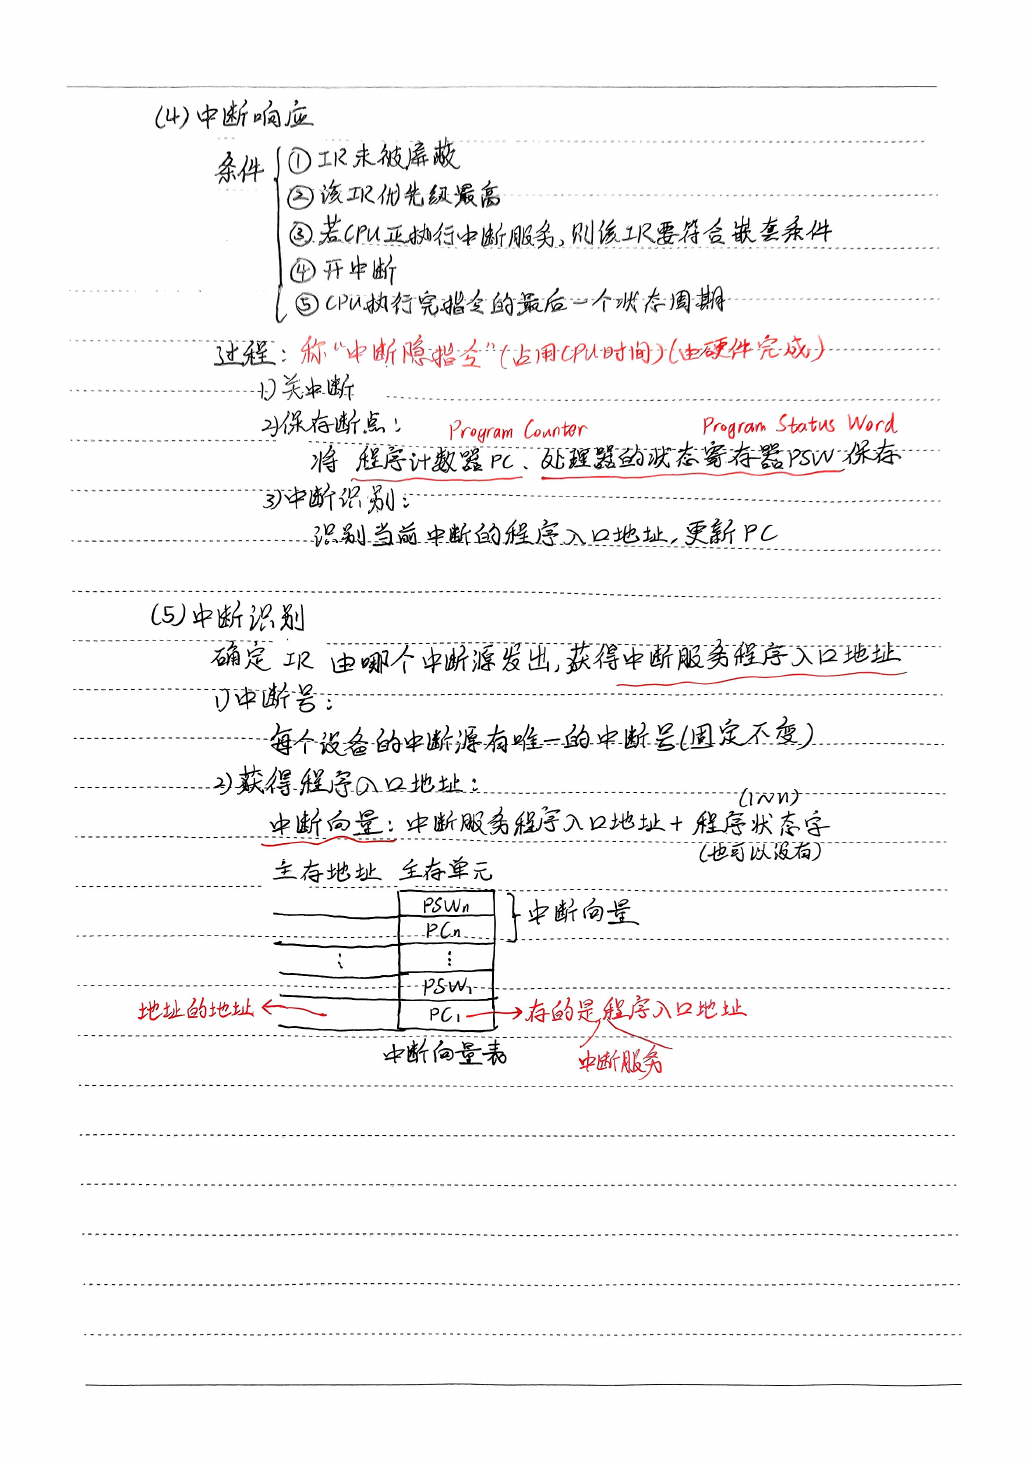 (4) 中断响应
条件 ① IR未被屏蔽
② 该IR优先级最高
③ 若CPU正执行中断服务,则该IR要符合嵌套条件
④ 开中断
⑤ CPU执行完指令的最后一个状态周期
过程: 称"中断隐指令"(占用CPU时间)(由硬件完成)
1) 关中断
2) 保存断点: Program Counter Program Status Word
将 程序计数器PC、处理器的状态寄存器PSW 保存
3) 中断识别:
识别当前中断的程序入口地址,更新PC
(5) 中断识别
确定 IR 由哪个中断源发出,获得中断服务程序入口地址
1) 中断号:
每个设备的中断源有唯一的中断号(固定不变)
2) 获得程序入口地址:
(1~n)
中断向量: 中断服务程序入口地址 + 程序状态字
(也可以没有)
主存地址 主存单元
PSWn
中断向量
PCn
⋮ ⋮
PSW1
地址的地址 PC1 存的是程序入口地址
中断向量表 中断服务